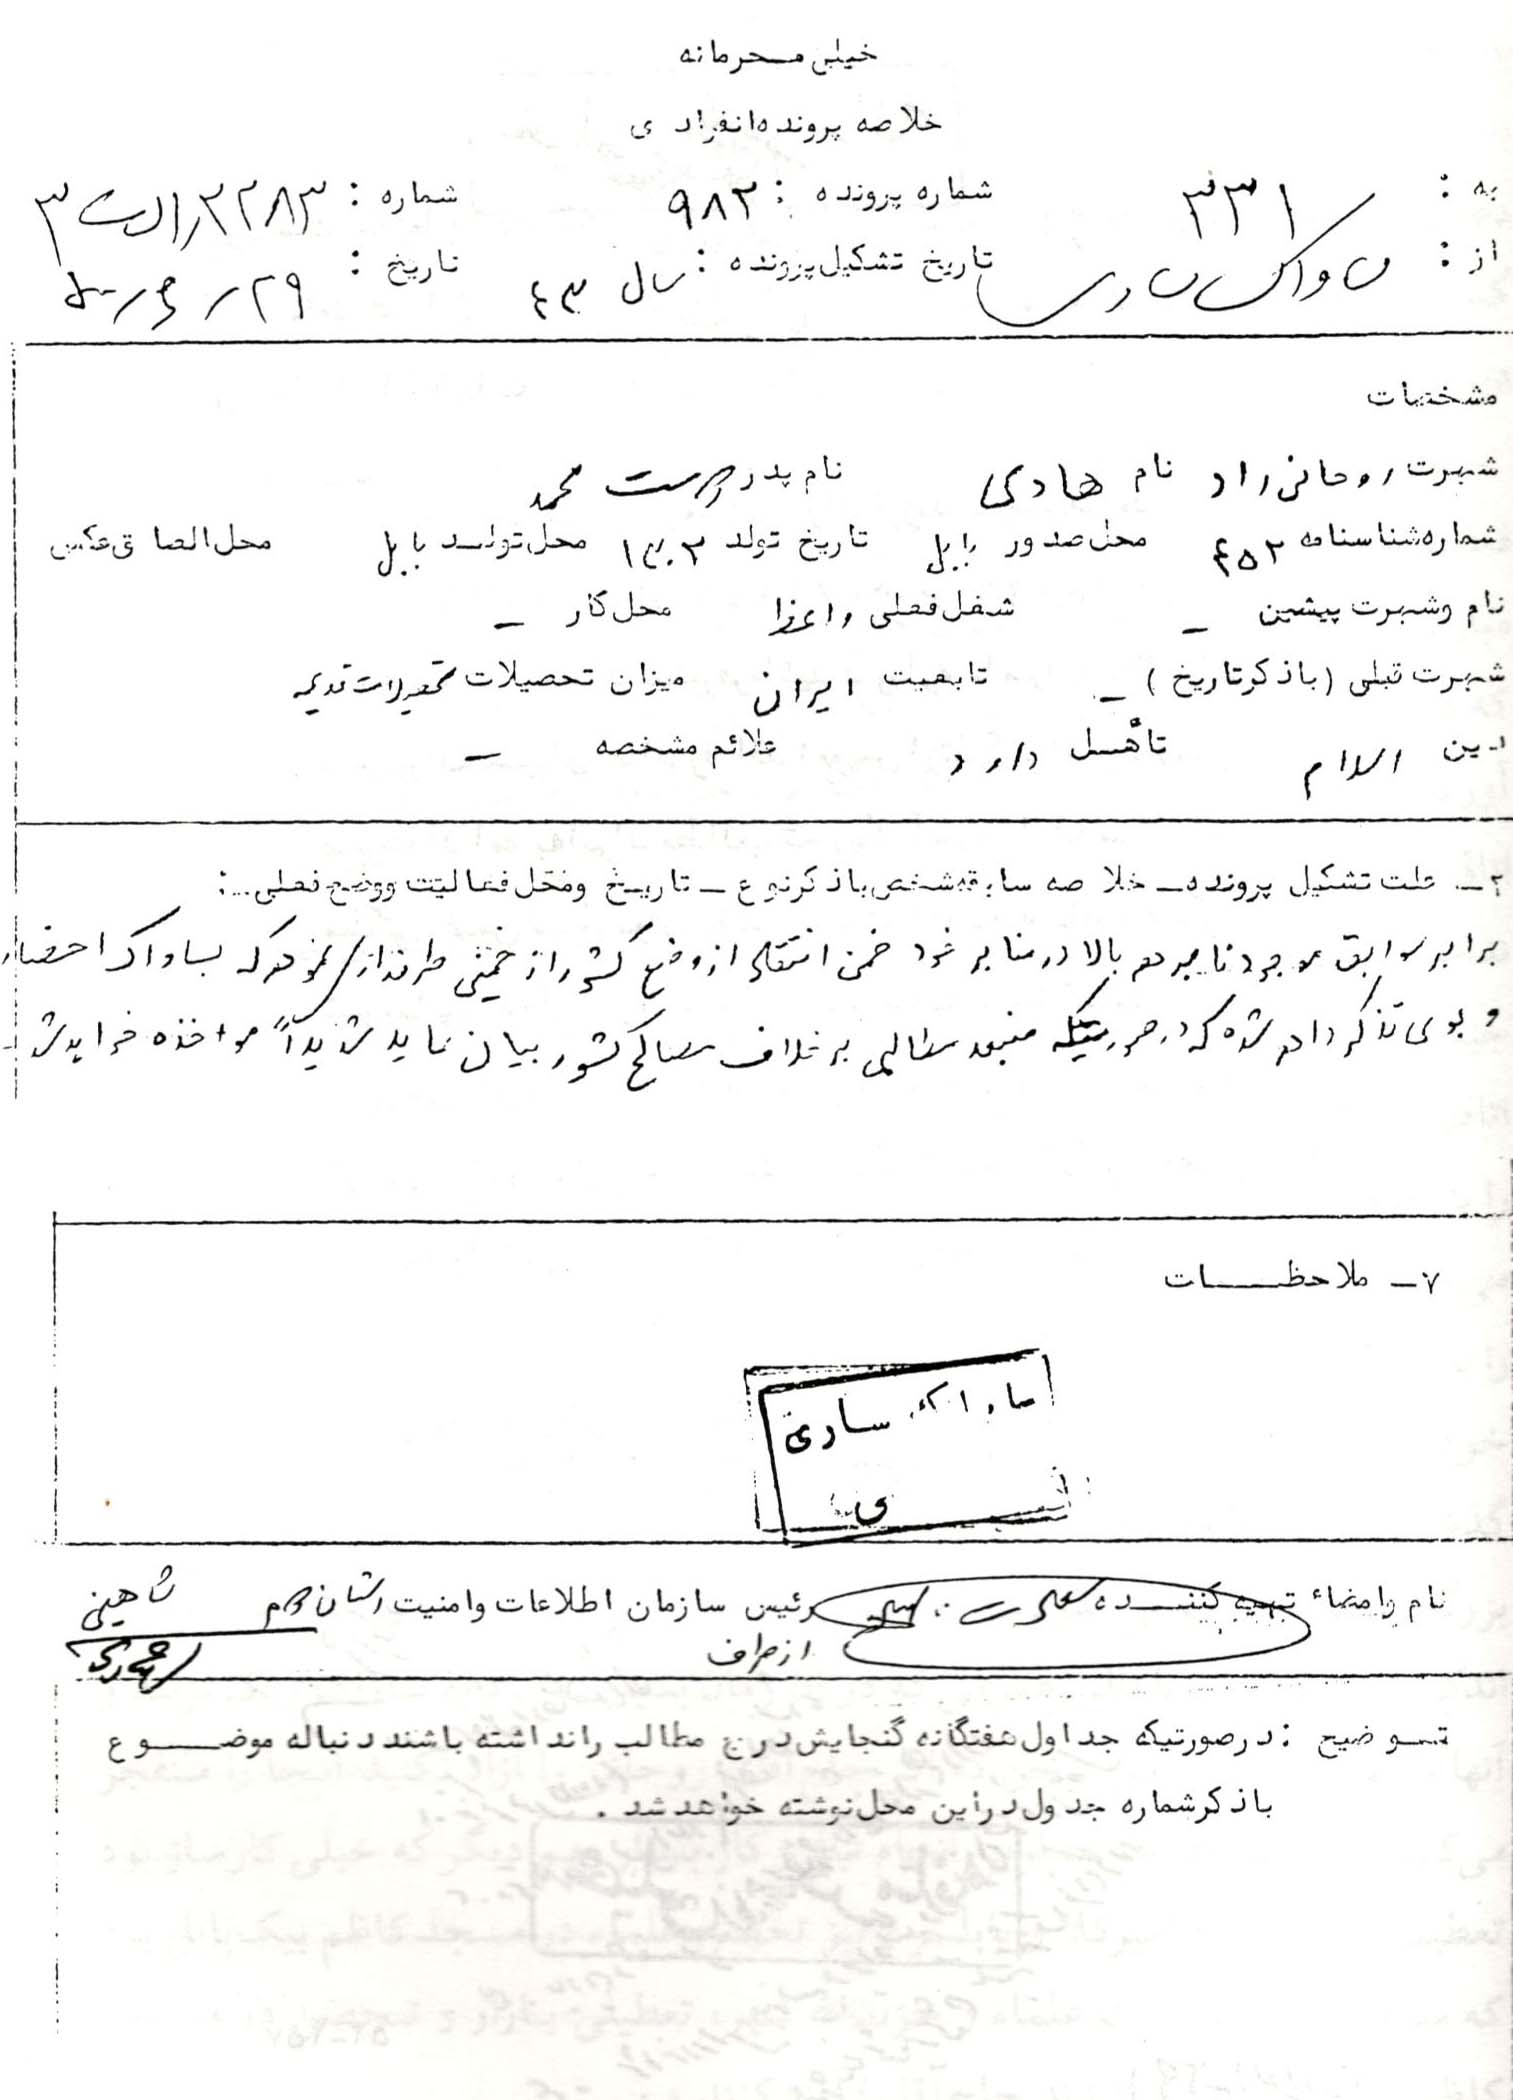 خیلی محرمانه
خلاصه پرونده انفرادی
به : ۳۳۱ شماره پرونده : ۹۸۲ شماره : ۳۲۸۳/الف ۳
از : ساواک ساری تاریخ تشکیل پرونده : سال ۴۳ تاریخ : ۲۹/۶/
مشخصات
شهرت روحانی راد نام هادی نام پدر دوست محمد
شماره شناسنامه ۴۵۲ محل صدور بابل تاریخ تولد ۱۳۰۲ محل تولد بابل محل الصاق عکس
نام و شهرت پیشین - شغل فعلی واعظ محل کار -
شهرت قبلی (با ذکر تاریخ) - تابعیت ایران میزان تحصیلات تحصیلات قدیمه
دین اسلام تأهل دارد علائم مشخصه -
۲- علت تشکیل پرونده - خلاصه سابقه شخص با ذکر نوع - تاریخ و محل فعالیت و وضع فعلی..:
برابر سوابق موجود نامبرده بالا در منابر خود ضمن انتقاد از وضع کشور از خمینی طرفداری نموده که بساواک احضار
و بوی تذکر داده شده که در صورتیکه منبعد مطالبی برخلاف مصالح کشور بیان نماید شدیداً مواخذه خواهد شد -
۷- ملاحظات
ساواک ساری
نام و امضاء تهیه کننده رئیس سازمان اطلاعات و امنیت استان دوم شاهینی
از طرف
توضیح : در صورتیکه جداول هفتگانه گنجایش درج مطالب را نداشته باشند دنباله موضوع
با ذکر شماره جدول در این محل نوشته خواهد شد .